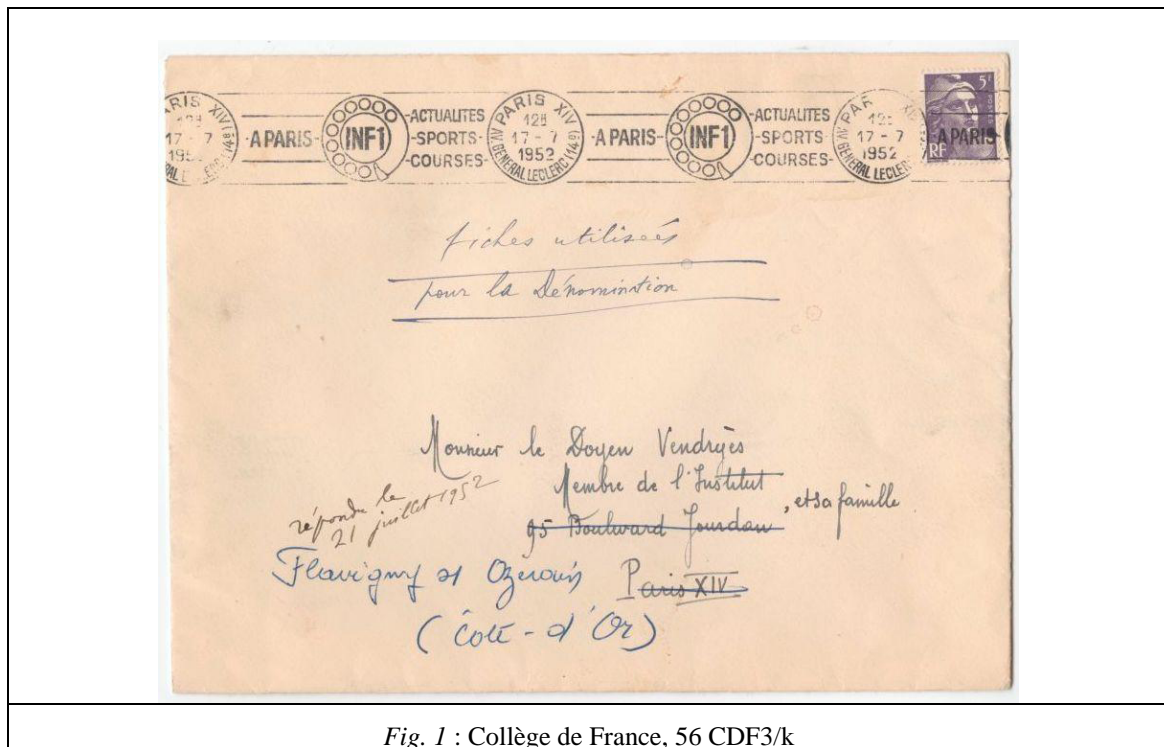 PARIS XIV 12H 17 - 7 1952 AV. GENERAL LECLERC (14e)
-A PARIS- INF1 -ACTUALITES -SPORTS- -COURSES-
PARIS XIV 12H 17 - 7 1952 AV. GENERAL LECLERC (14e)
-A PARIS- INF1 -ACTUALITES -SPORTS -COURSES-
PARIS XIV 17 - 7 1952 AV. GENERAL LECLERC
-A PARIS-
5F
RF
fiches utilisées
pour la Dénomination
Monsieur le Doyen Vendryès
Membre de l'Institut
, et sa famille
95 Boulevard Jourdan
répondu le
21 juillet 1952
Flavigny Ozerain Paris XIV
(Côte-d'Or)
Fig. 1 : Collège de France, 56 CDF3/k